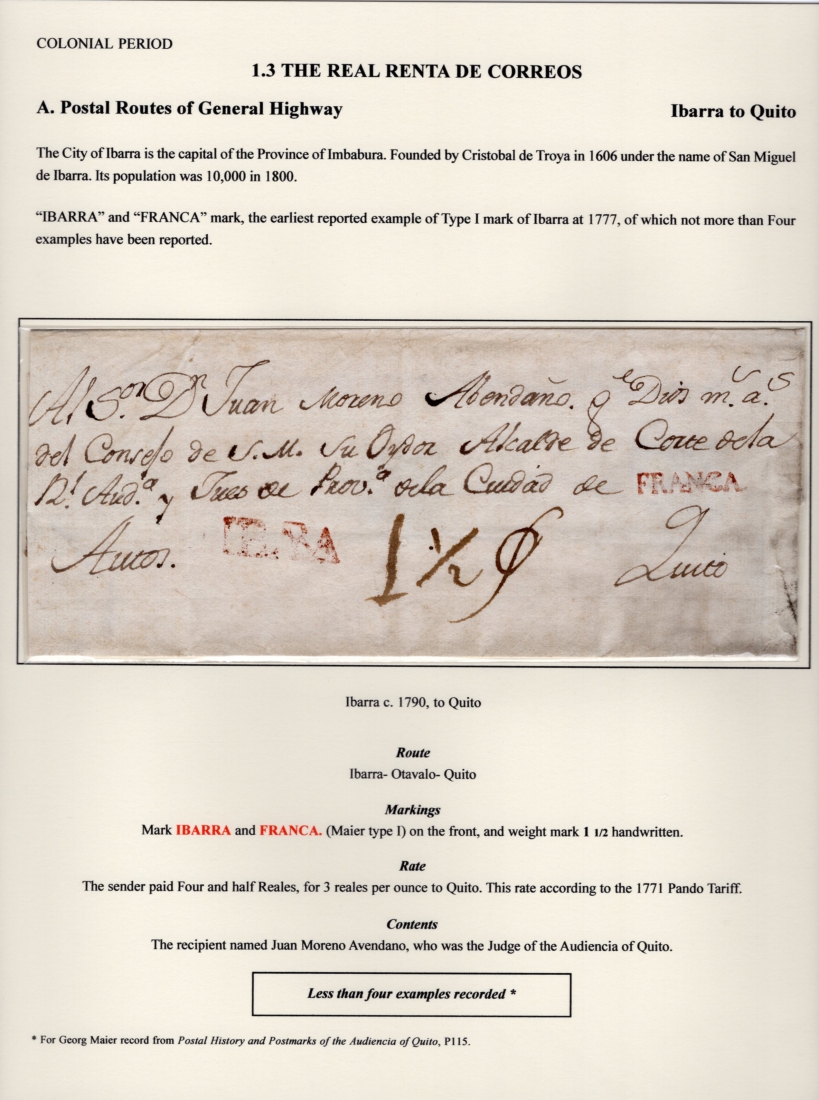 COLONIAL PERIOD
1.3 THE REAL RENTA DE CORREOS
A. Postal Routes of General Highway Ibarra to Quito
The City of Ibarra is the capital of the Province of Imbabura. Founded by Cristobal de Troya in 1606 under the name of San Miguel
de Ibarra. Its population was 10,000 in 1800.
“IBARRA” and “FRANCA” mark, the earliest reported example of Type I mark of Ibarra at 1777, of which not more than Four
examples have been reported.
Al S.or Dn Juan Moreno Abendaño. q e Dios m.s a.s
del Consejo de S.M. Su Oydor Alcalde de Corte de la
Rl Aud.a y Juez de Prov.a de la Ciudad de FRANCA
Autos. 1 1/2 Quito
Ibarra c. 1790, to Quito
Route
Ibarra- Otavalo- Quito
Markings
Mark IBARRA and FRANCA. (Maier type I) on the front, and weight mark 1 1/2 handwritten.
Rate
The sender paid Four and half Reales, for 3 reales per ounce to Quito. This rate according to the 1771 Pando Tariff.
Contents
The recipient named Juan Moreno Avendano, who was the Judge of the Audiencia of Quito.
Less than four examples recorded *
* For Georg Maier record from Postal History and Postmarks of the Audiencia of Quito, P115.